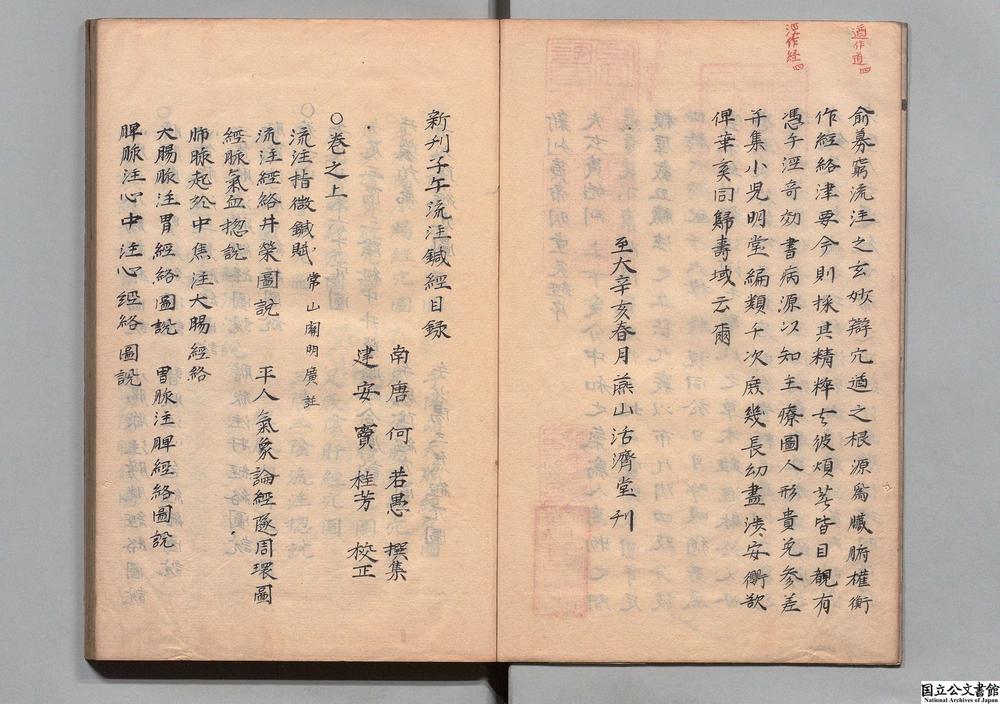 遒作道四
涇作経四
俞募窮流注之玄妙辯穴遒之根源爲臟腑權衡
作經絡津要今則採其精粹去彼煩蕪皆目覩有
憑手涇奇効書病源以知主療圖人形貴免參差
并集小児明堂編類于次庶幾長幼盡涉安衢欲
俾華亥同歸壽域云爾
至大辛亥春月燕山活濟堂刊
新刋子午流注鍼經目録
南唐何若愚撰集
建安竇桂芳校正
○卷之上
流注指微鍼賦 常山閻明廣註
流注經絡井滎圖說 平人氣象論經隧周環圖
經脉氣血揔說
肺脉起於中焦注大腸經絡
大腸脉注胃經絡圖說 胃脉注脾經絡圖說
脾脉注心中注心經絡圖說
国立公文書館
National Archives of Japan